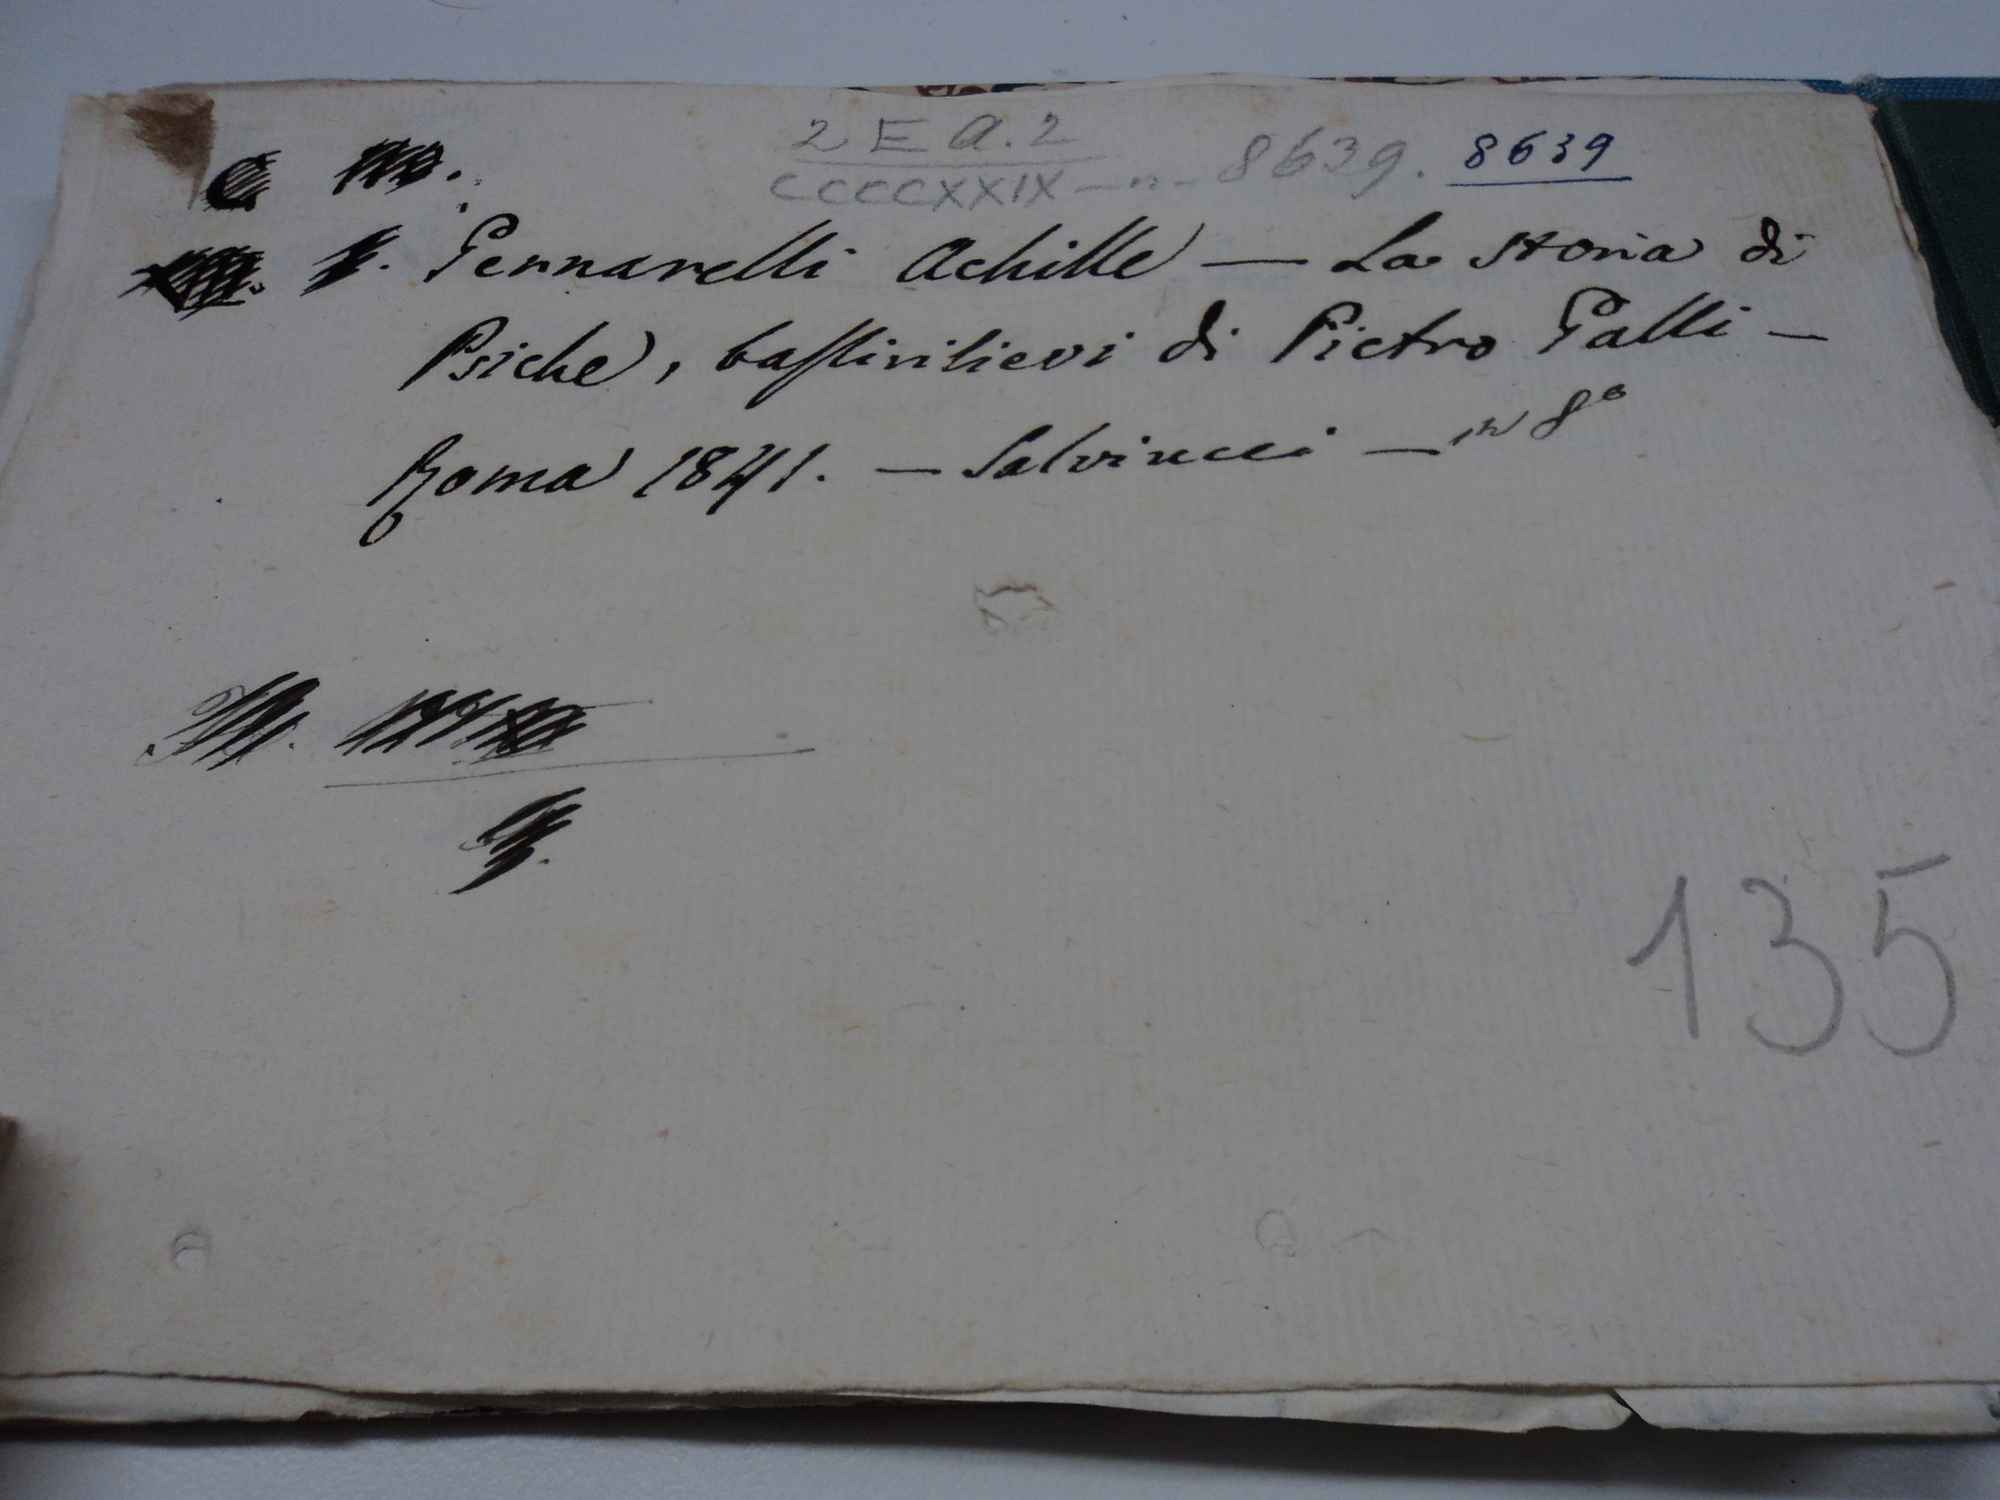 2 E a. 2
CCCCXXIX — n - 8639. 8639
Gennarelli Achille — La storia di
Psiche, bassirilievi di Pietro Galli —
Roma 1841. — Salviucci — in 8°
135